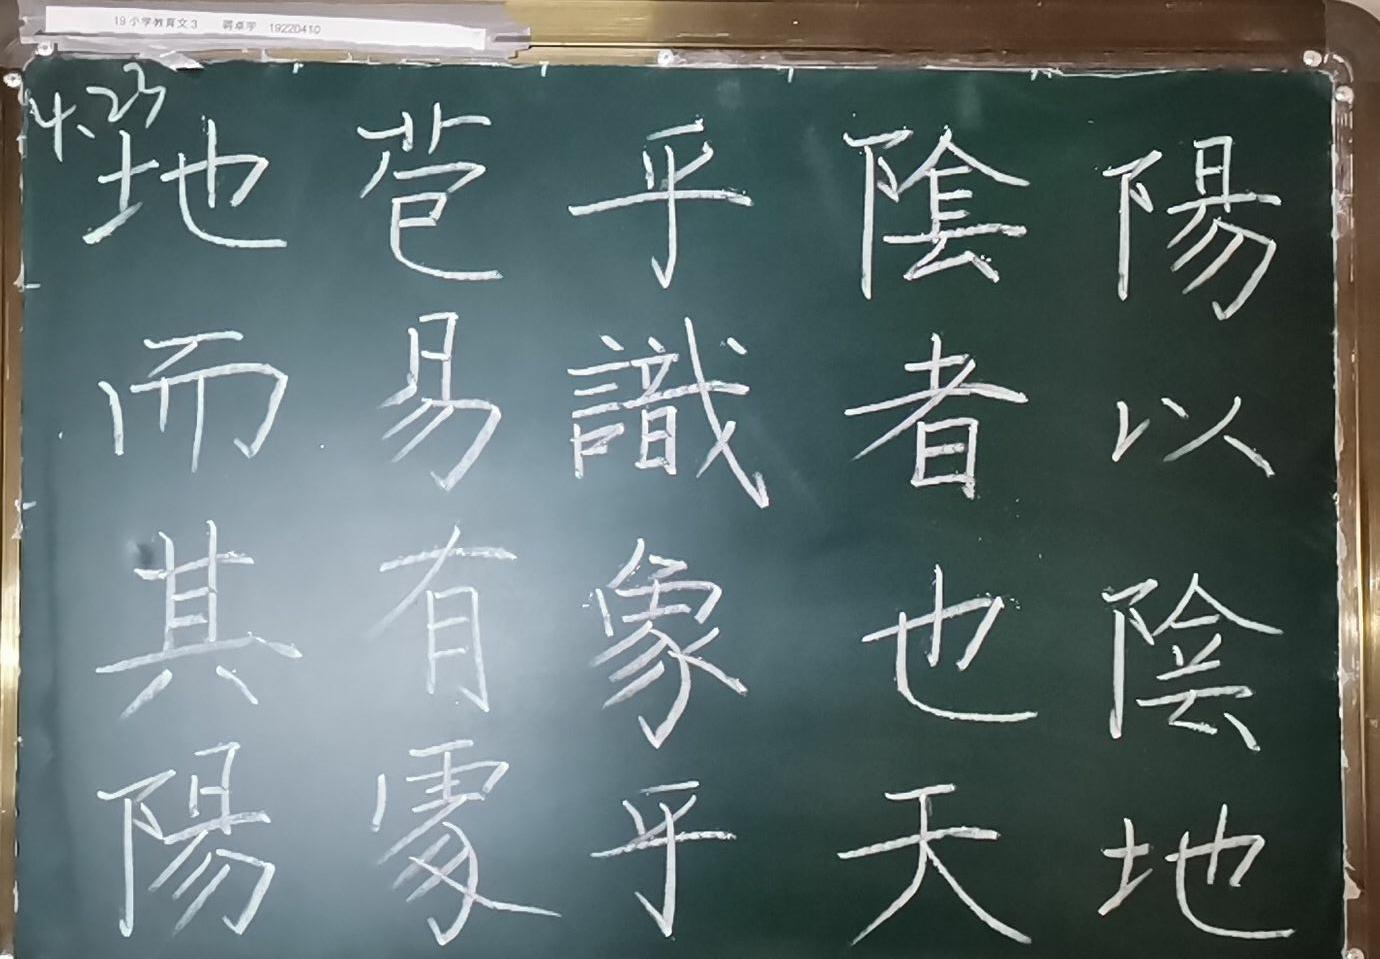 19小学教育文3 19220410
4、23
地苞乎陰陽
而易識者以
其有象也陰
陽處乎天地